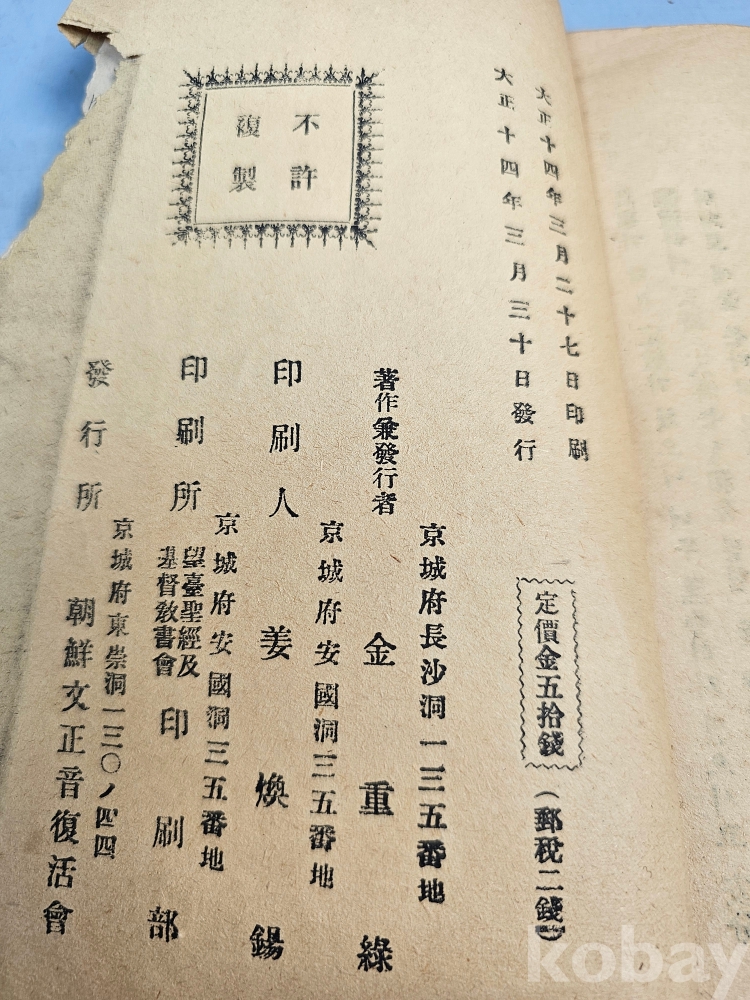 大正十四年三月二十七日印刷
大正十四年三月三十日發行
定價金五拾錢
(郵稅二錢)
不許
複製
京城府長沙洞一三五番地
著作兼發行者 金重綠
京城府安國洞三五番地
印刷人 姜煥錫
京城府安國洞三五番地
印刷所 望臺聖經及基督敎書會 印刷部
京城府東崇洞一三〇ノ四四
發行所 朝鮮文正音復活會
kobay